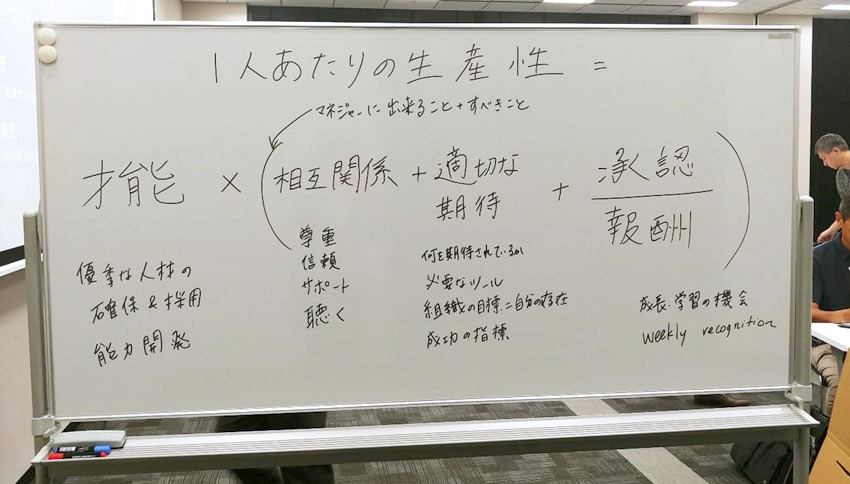 1人あたりの生産性 =
マネジャーに出来ること+すべきこと
才能 × (相互関係 + 適切な期待 + 承認/報酬)
優秀な人材の
確保&採用
能力開発
尊重
信頼
サポート
聴く
何を期待されているか
必要なツール
組織の目標=自分の存在
成功の指標
成長・学習の機会
weekly recognition